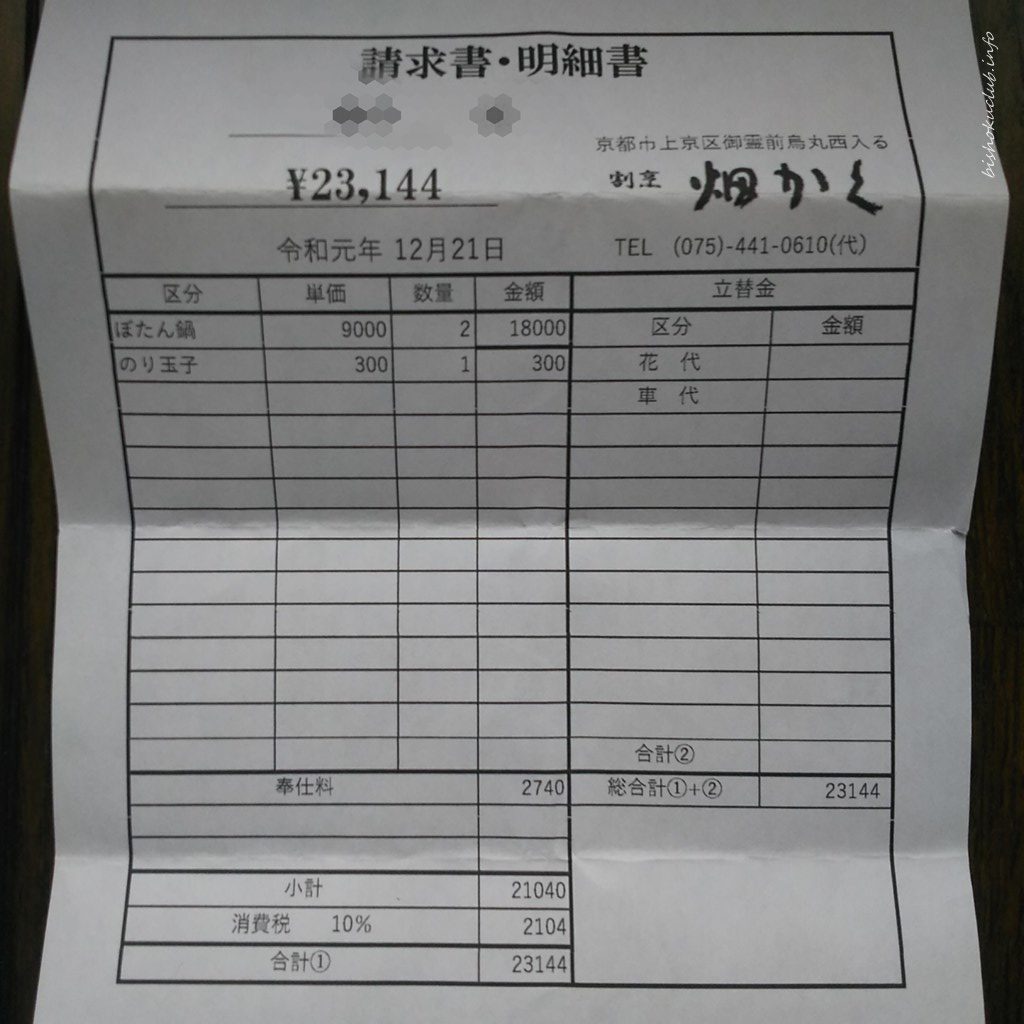 請求書・明細書
京都市上京区御霊前烏丸西入る
¥23,144
割烹 畑かく
令和元年 12月21日
TEL (075)-441-0610(代)
区分 単価 数量 金額 立替金
ぼたん鍋 9000 2 18000 区分 金額
のり玉子 300 1 300 花 代
車 代
合計②
奉仕料 2740 総合計①+② 23144
小計 21040
消費税 10% 2104
合計① 23144
bishokuclub.info